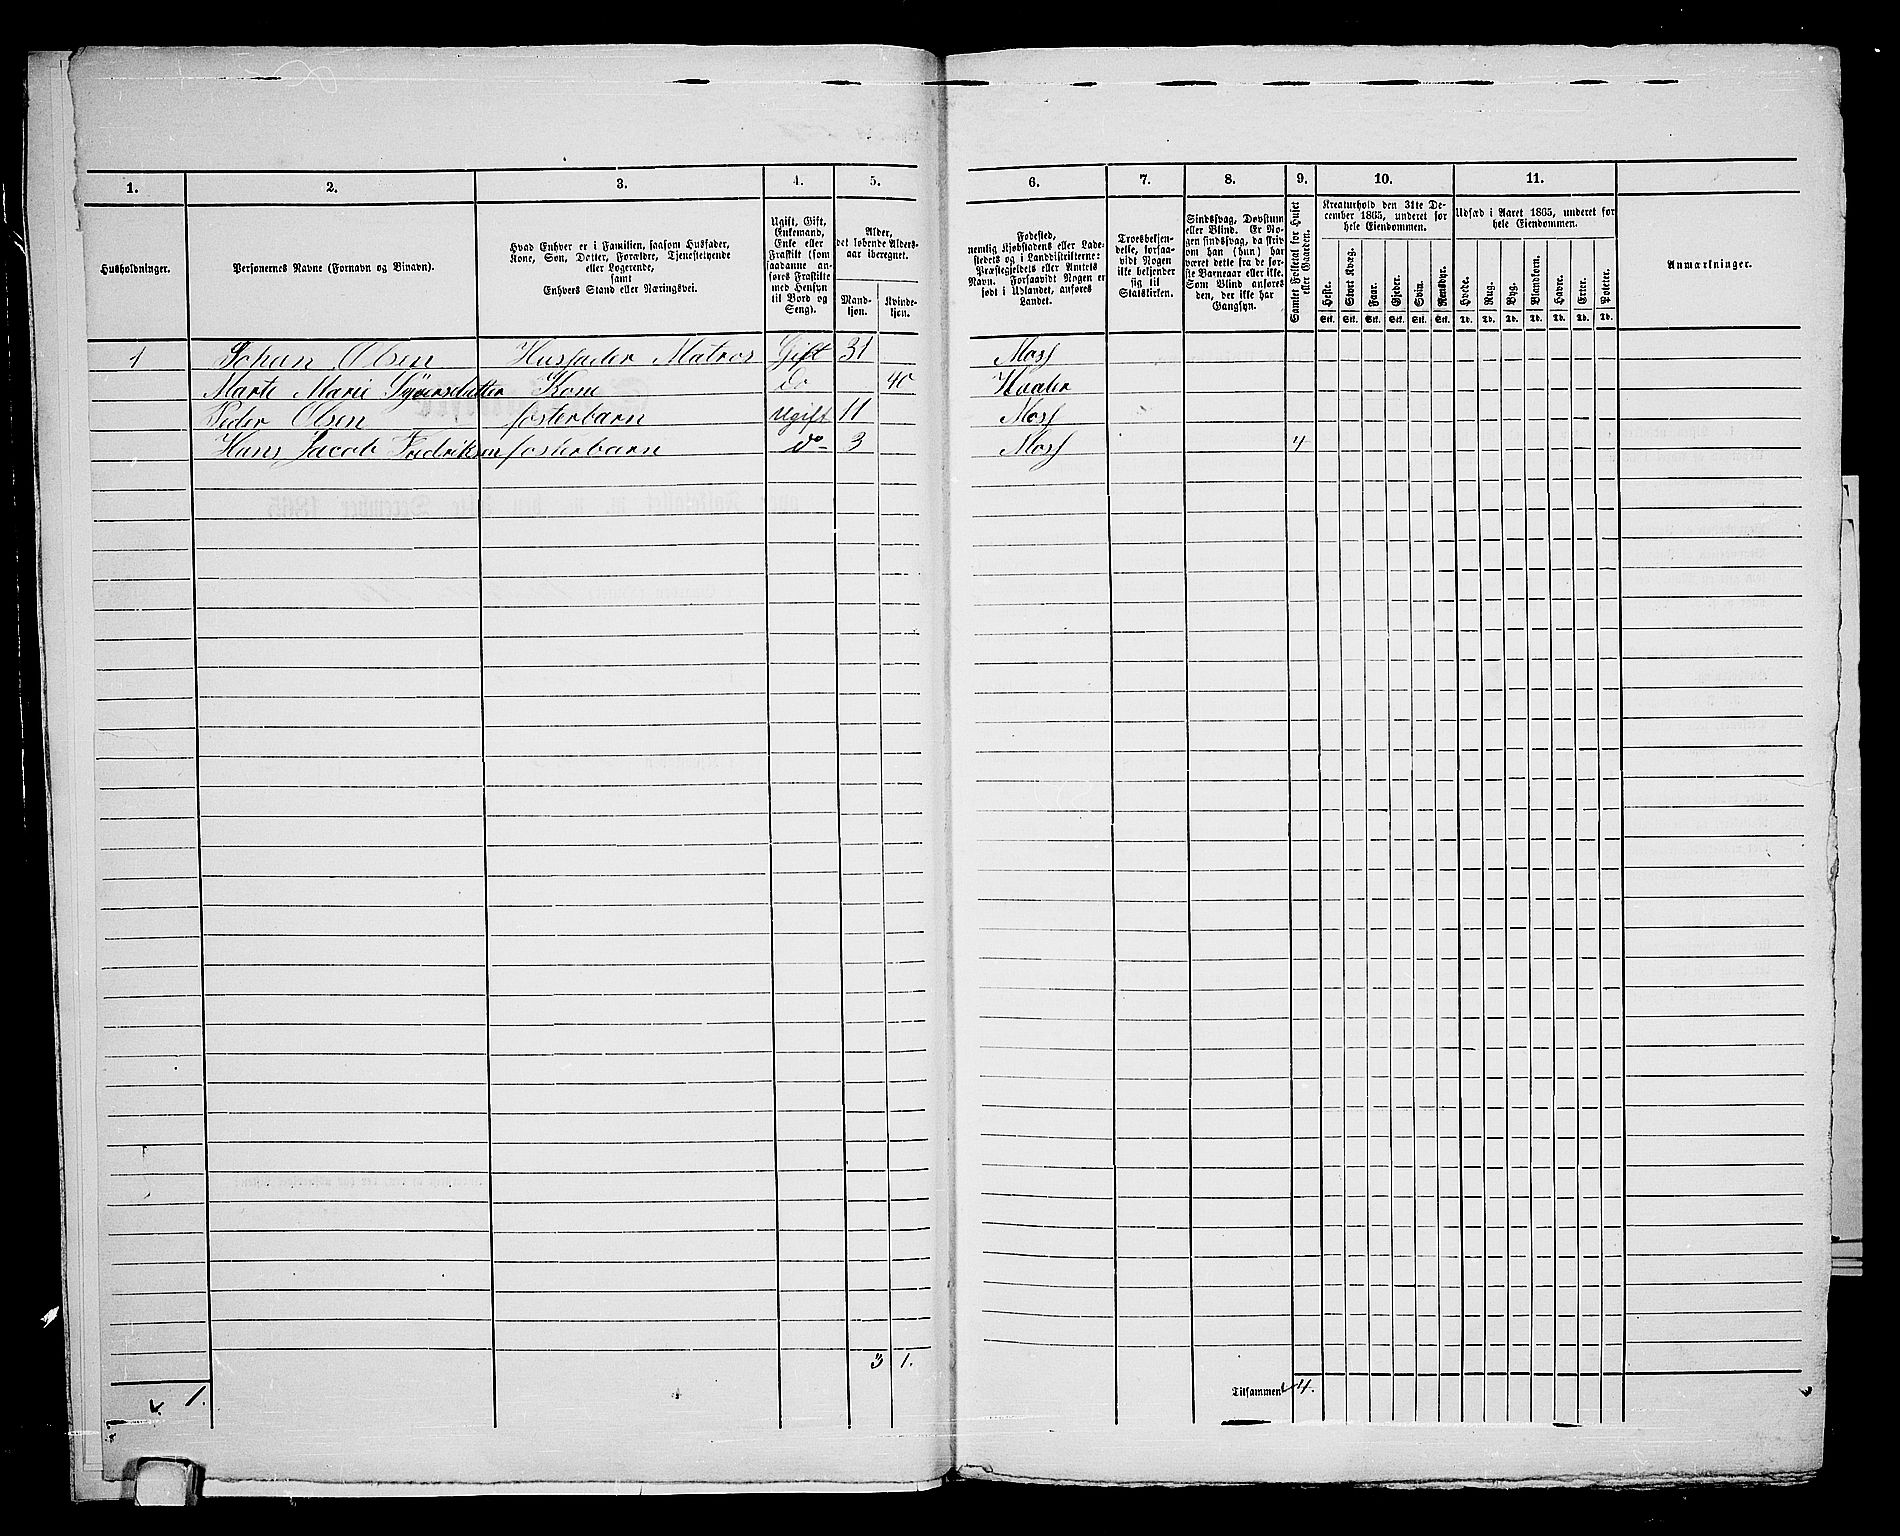 1. 2. 3. 4. 5. 6. 7. 8. 9. 10. 11.
Husholdninger.
Personernes Navne (Fornavn og Binavn).
Hvad Enhver er i Familien, saasom Husfader,
Kone, Søn, Dotter, Forældre, Tjenestetyende
eller Logerende,
samt
Enhvers Stand eller Næringsvei.
Ugift, Gift,
Enkemand,
Enke eller
Fraskilt (som
saadanne an-
føres Fraskilte
med Hensyn
til Bord og
Seng).
Alder,
det løbende Alders-
aar iberegnet.
Mand-
kjøn.
Kvinde-
kjøn.
Fødested,
nemlig Kjøbstadens eller Lade-
stedets og i Landdistrikterne:
Præstegjeldets eller Amtets
Navn. Forsaavidt Nogen er
født i Udlandet, anføres
Landet.
Troesbekjen-
delse, forsaa-
vidt Nogen
ikke bekjender
sig til
Statskirken.
Sindssvag, Døvstum
eller Blind. Er No-
gen sindssvag, da skriv
om han (hun) har
været dette fra de før-
ste Barneaar eller ikke.
Som Blind anføres
den, der ikke har
Gangsyn.
Samlet Folketal for Huset
eller Gaarden.
Kreaturhold den 31te De-
cember 1865, underet for
hele Eiendommen.
Heste. Stort Kvæg. Faar. Gjeder. Svin. Rensdyr.
Stk. Stk. Stk. Stk. Stk. Stk.
Udsæd i Aaret 1865, underet for
hele Eiendommen.
Hvede. Rug. Byg. Blandkorn. Havre. Erter. Poteter.
Td. Td. Td. Td. Td. Td. Td.
Anmærkninger.
1 Johan Olsen Husfader Matros Gift 31 Moss
Marte Marie Kone do 40 Hvaler
Peder Olsen fosterbarn Ugift 11 Moss
Hans Jacob Fredriksen fosterbarn do 3 Moss 4
3 1.
1.
Tilsammen 4.